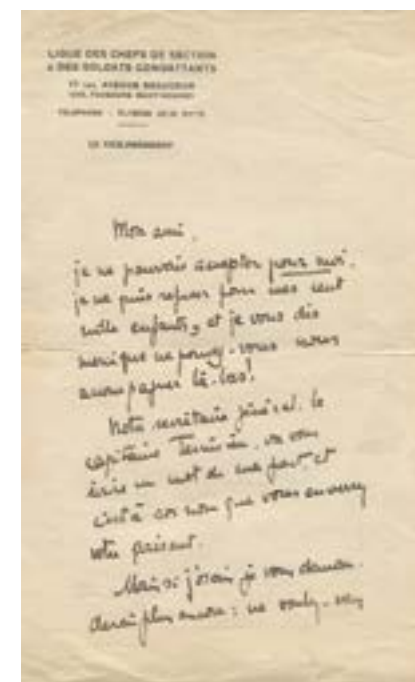 LIGUE DES CHEFS DE SECTION
& DES SOLDATS COMBATTANTS
17 AVENUE
TELEPHONE : ELYSEES
LE VICE-PRESIDENT
Mon ami,
je ne pouvais accepter pour moi.
je ne puis refuser pour mes cent
mille enfants, et je vous dis
merci que ne pouvez-vous nous
accompagner là-bas!
Notre secrétaire général, le
capitaine va vous
écrire un mot de ma part et
c'est à son nom que vous enverrez
votre présent.
Mais si j'osais je vous deman-
derais plus encore : ne voulez-vous